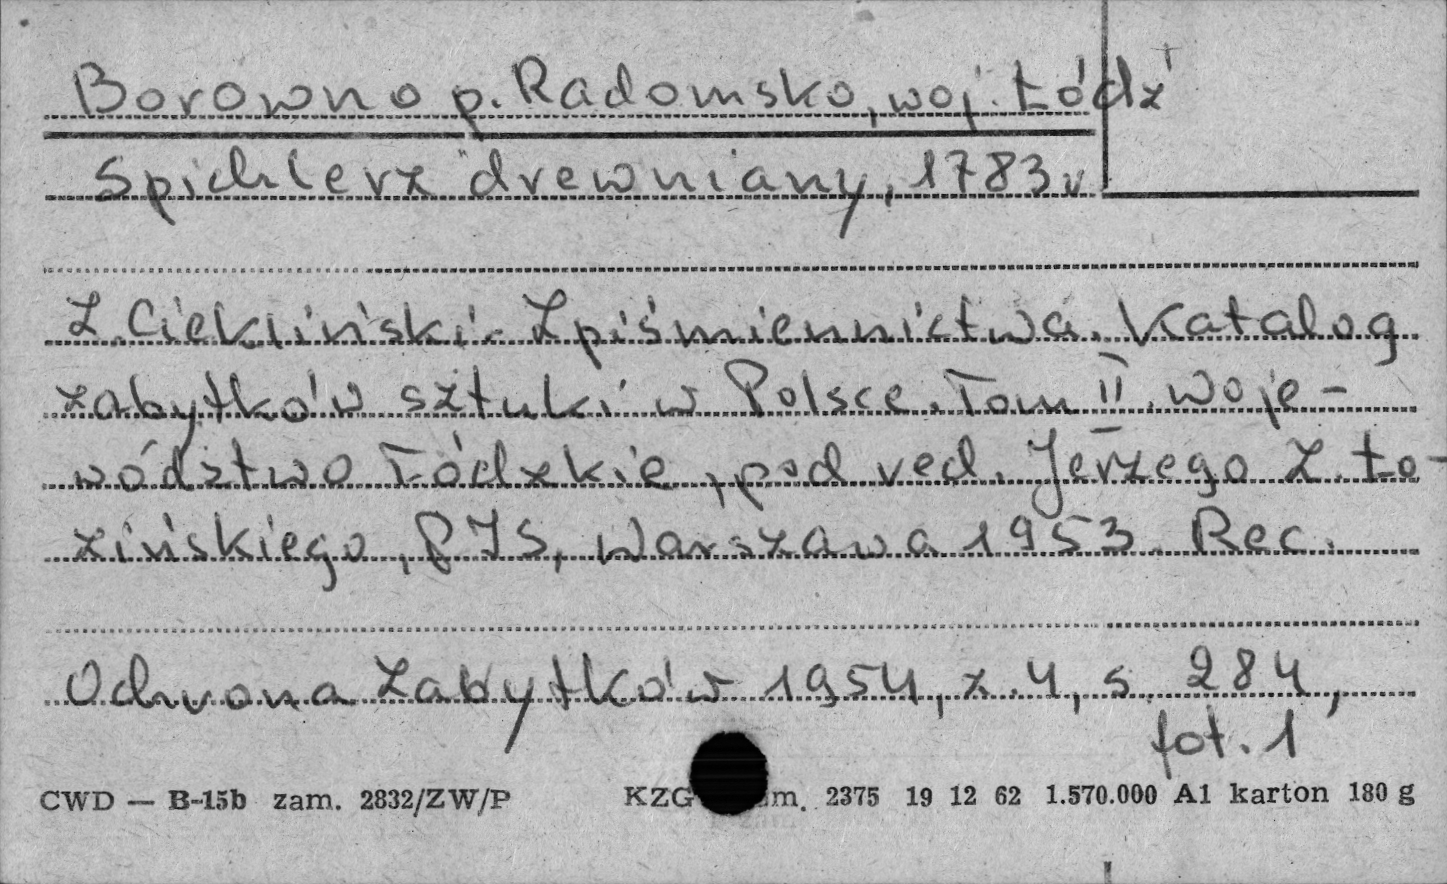 Borowno p. Radomsko, woj. Łódź
Spichlerz drewniany, 1783 r.
Z. Ciekliński - Z piśmiennictwa. Katalog
zabytków sztuki w Polsce. Tom II. Woje-
wództwo Łódzkie, pod red. Jerzego Z. Ło-
zińskiego, PIS, Warszawa 1953. Rec.
Ochrona Zabytków 1954, z. 4, s. 284,
fot. 1
CWD — B-15b zam. 2832/ZW/P KZG m. 2375 19 12 62 1.570.000 A1 karton 180 g